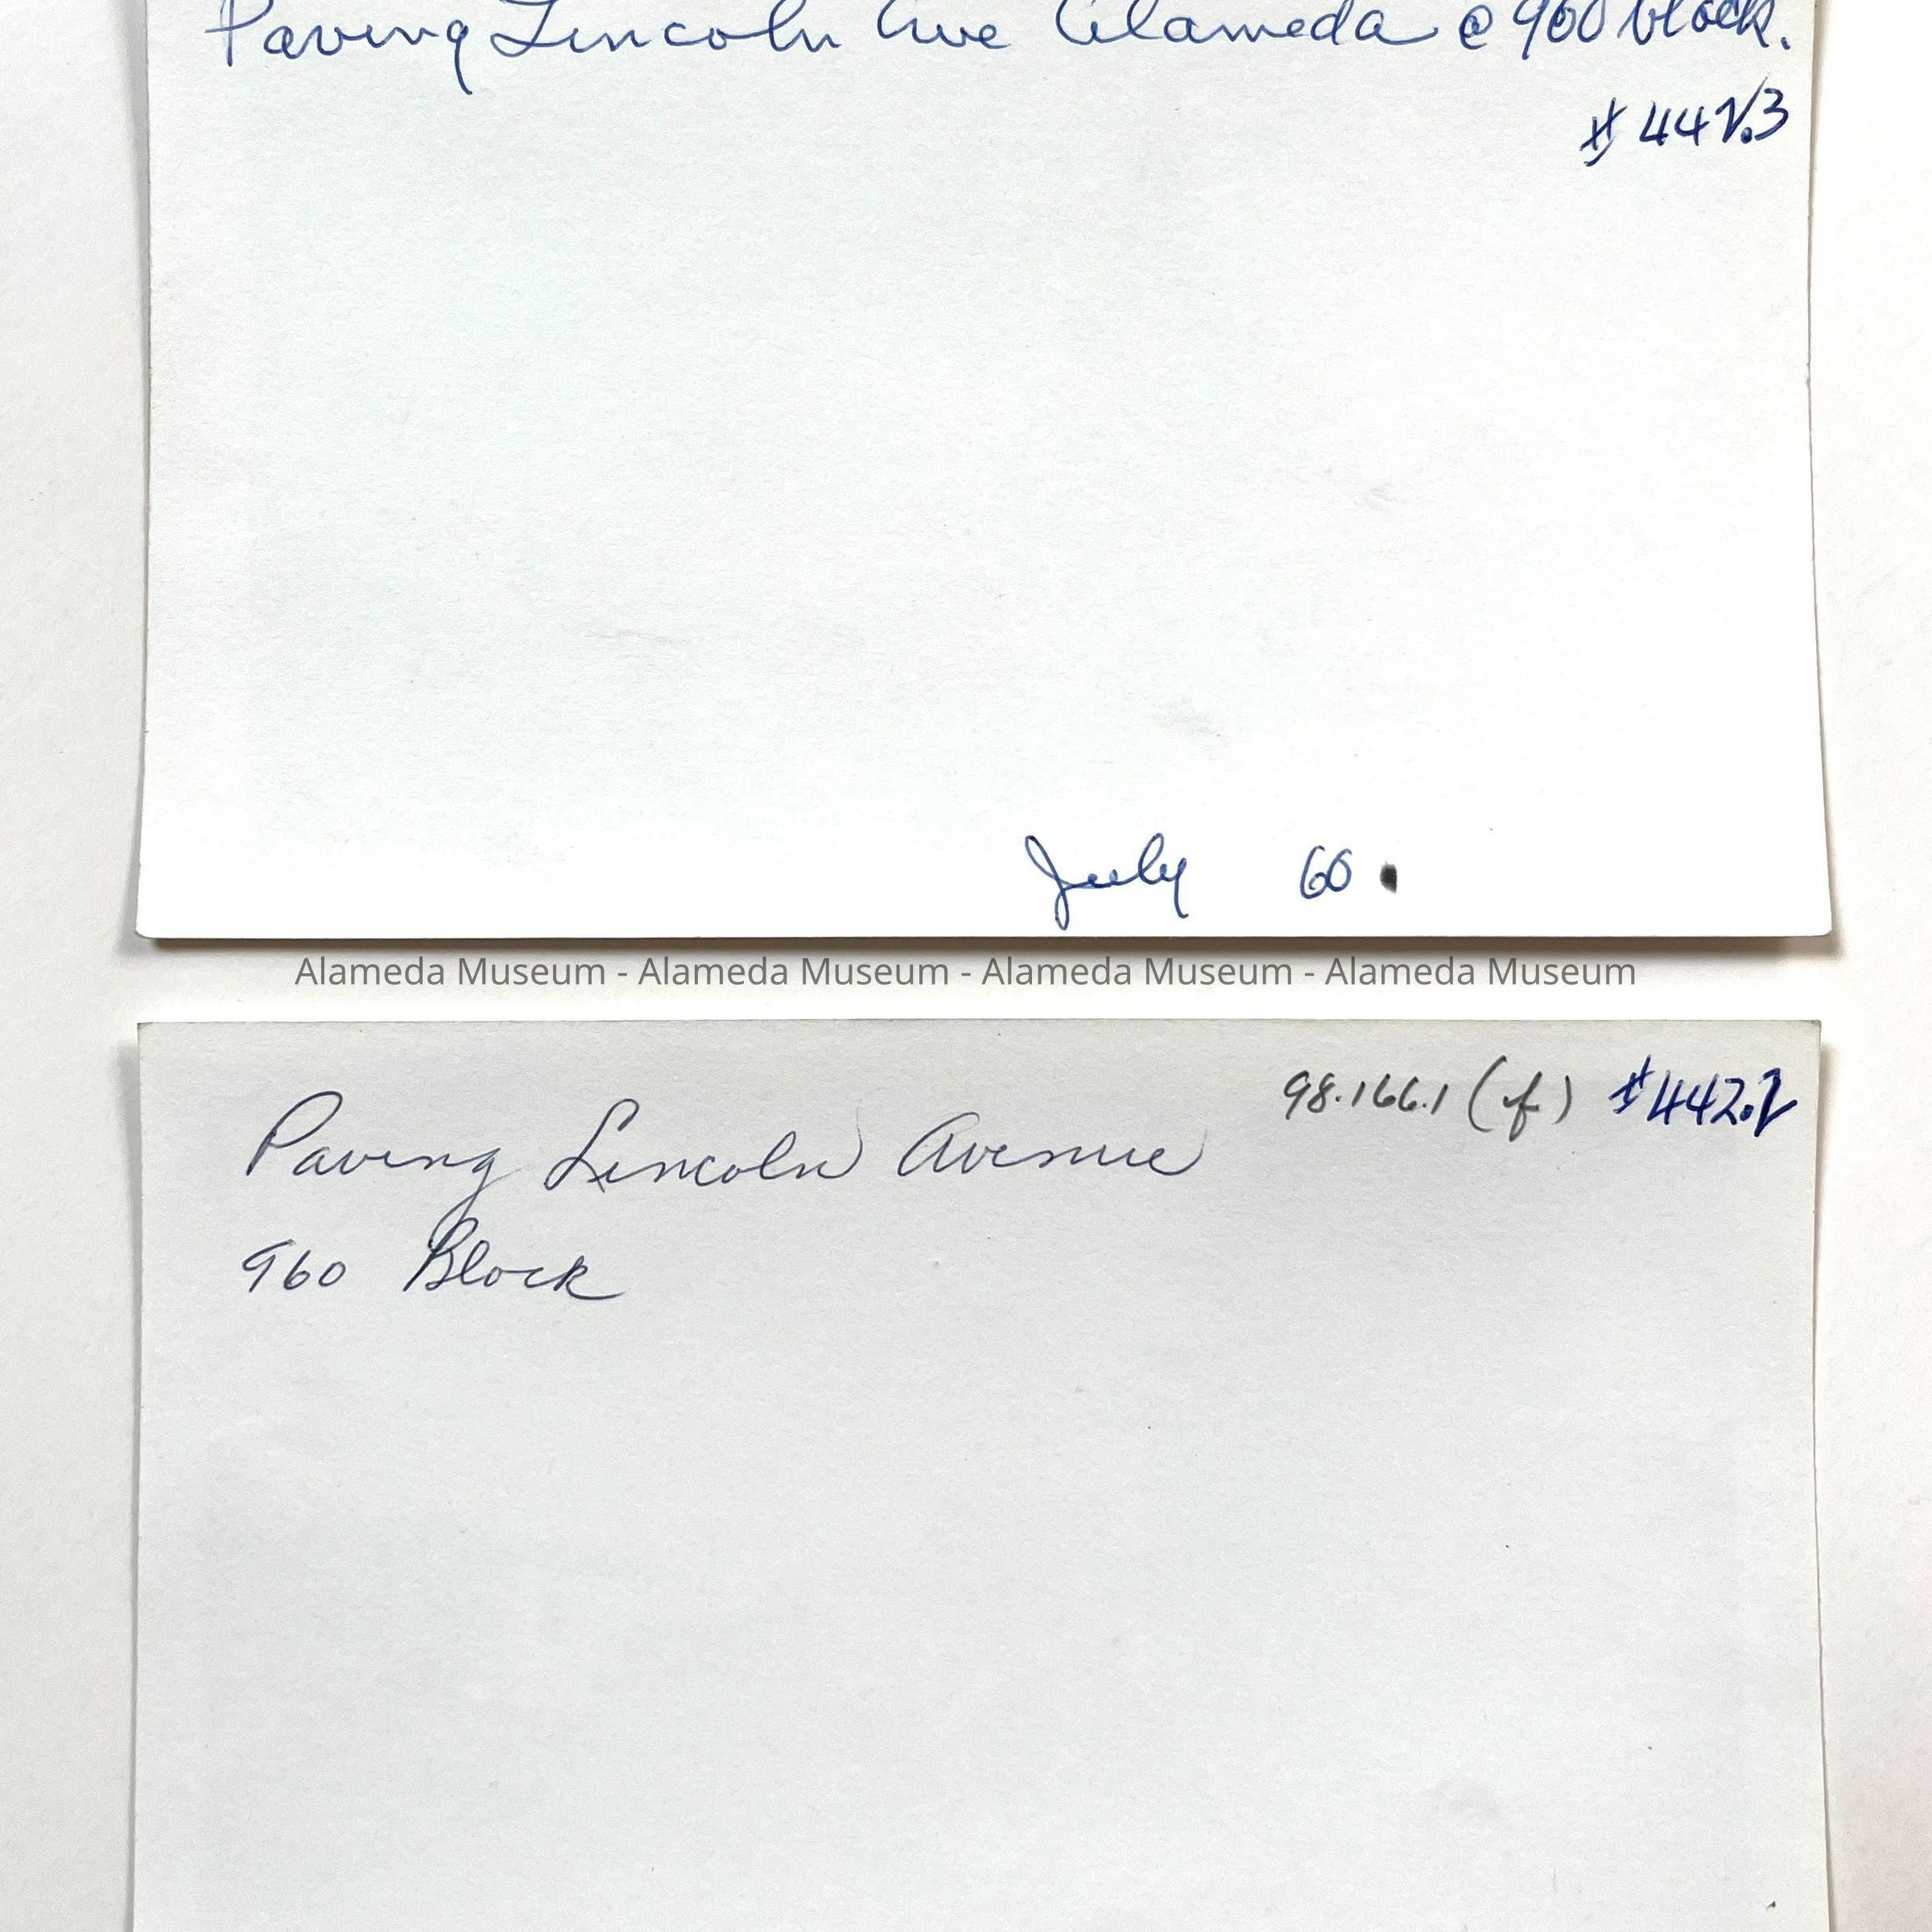 Paving Lincoln Ave Alameda @ 960 block.
#442.3
July 60.
Alameda Museum - Alameda Museum - Alameda Museum - Alameda Museum
98.166.1 (f) #442.2
Paving Lincoln Avenue
960 Block